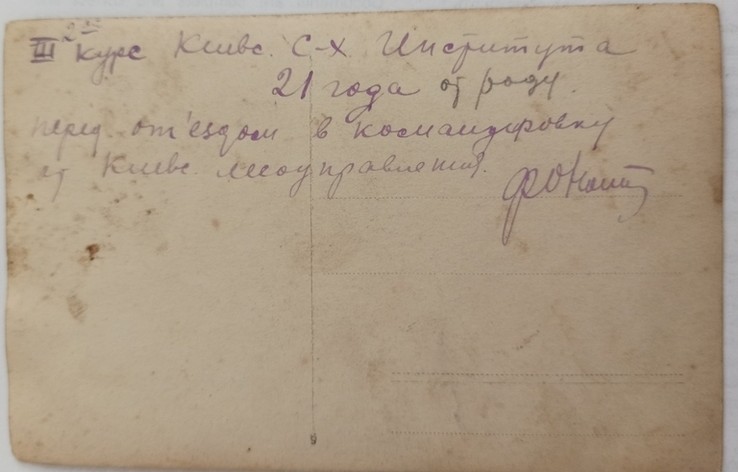 III курс Киевс. С-Х. Института
21 года от роду.
перед от'ездом в командировку
от Киевс. лесоуправления.